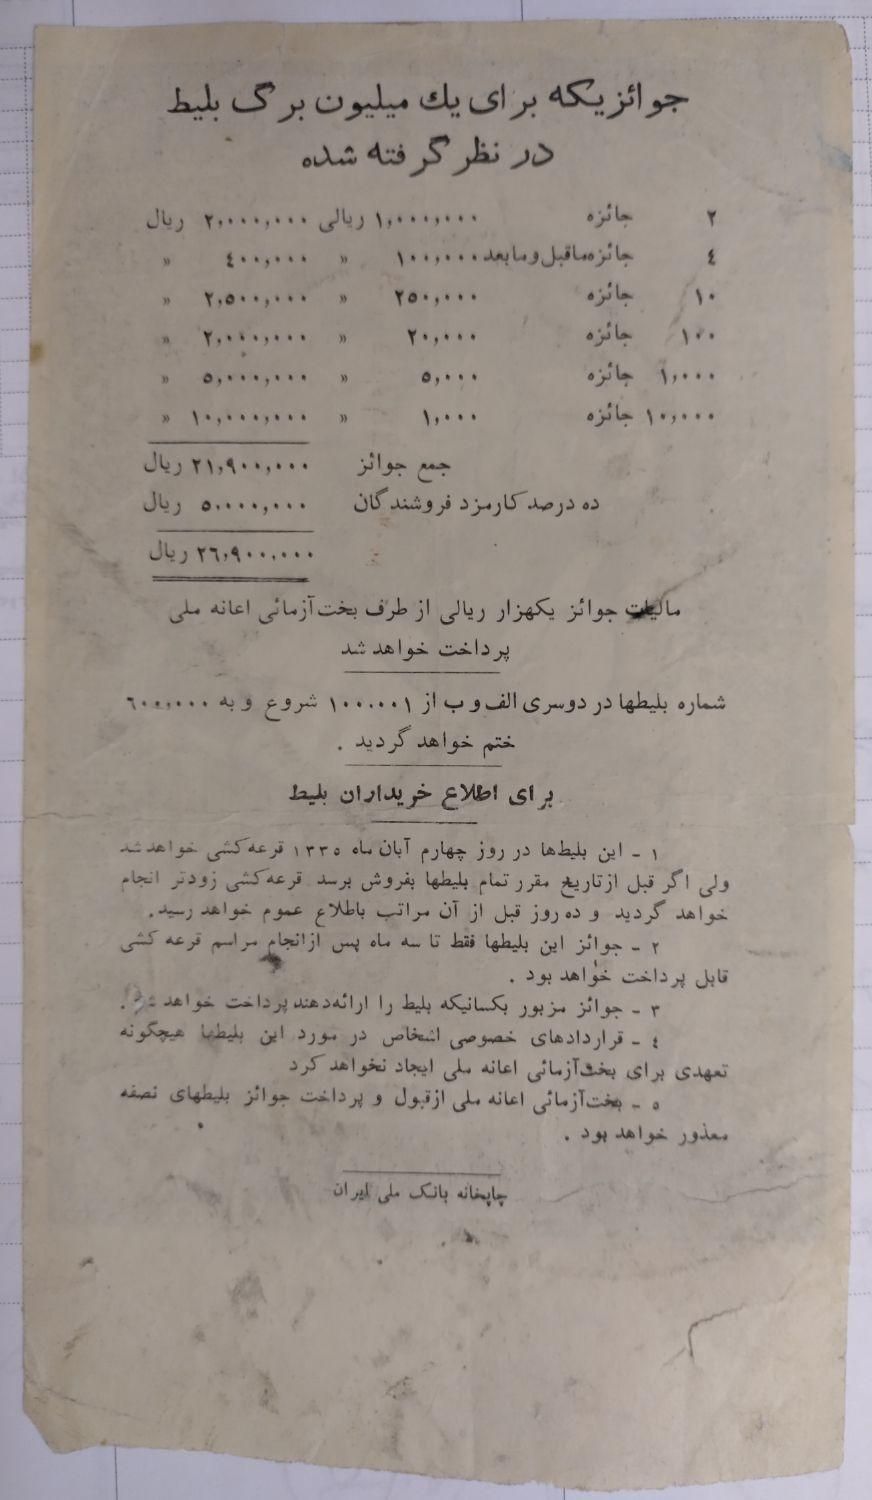 جوائزیکه برای یك میلیون برگ بلیط
در نظر گرفته شده
۲ جائزه ۱٫۰۰۰٫۰۰۰ ریالی ۲٫۰۰۰٫۰۰۰ ریال
٤ جائزه ماقبل و مابعد ۱۰۰٫۰۰۰ « ٤۰۰٫۰۰۰ «
۱۰ جائزه ۲۵۰٫۰۰۰ « ۲٫۵۰۰٫۰۰۰ «
۱۰۰ جائزه ۲۰٫۰۰۰ « ۲٫۰۰۰٫۰۰۰ «
۱٫۰۰۰ جائزه ۵٫۰۰۰ « ۵٫۰۰۰٫۰۰۰ «
۱۰٫۰۰۰ جائزه ۱٫۰۰۰ « ۱۰٫۰۰۰٫۰۰۰ «
جمع جوائز ۲۱٫۹۰۰٫۰۰۰ ریال
ده درصد کارمزد فروشندگان ۵.۰۰۰٫۰۰۰ ریال
۲٦٫۹۰۰.۰۰۰ ریال
مالیات جوائز یکهزار ریالی از طرف بخت‌آزمائی اعانه ملی
پرداخت خواهد شد
شماره بلیطها در دوسری الف و ب از ۱۰۰.۰۰۱ شروع و به ٦۰۰٫۰۰۰
ختم خواهد گردید .
برای اطلاع خریداران بلیط
۱ - این بلیط‌ها در روز چهارم آبان ماه ۱۳۳۵ قرعه‌کشی خواهد شد
ولی اگر قبل از تاریخ مقرر تمام بلیطها بفروش برسد قرعه‌کشی زودتر انجام
خواهد گردید و ده روز قبل از آن مراتب باطلاع عموم خواهد رسید.
۲ - جوائز این بلیطها فقط تا سه ماه پس از انجام مراسم قرعه کشی
قابل پرداخت خواهد بود .
۳ - جوائز مزبور بکسانیکه بلیط را ارائه‌دهند پرداخت خواهد شد .
٤ - قراردادهای خصوصی اشخاص در مورد این بلیطها هیچگونه
تعهدی برای بخت‌آزمائی اعانه ملی ایجاد نخواهد کرد
۵ - بخت‌آزمائی اعانه ملی از قبول و پرداخت جوائز بلیطهای نصفه
معذور خواهد بود .
چاپخانه بانک ملی ایران